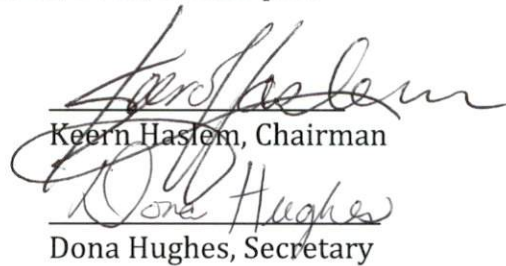 Keern Haslem
Keern Haslem, Chairman
Dona Hughes
Dona Hughes, Secretary